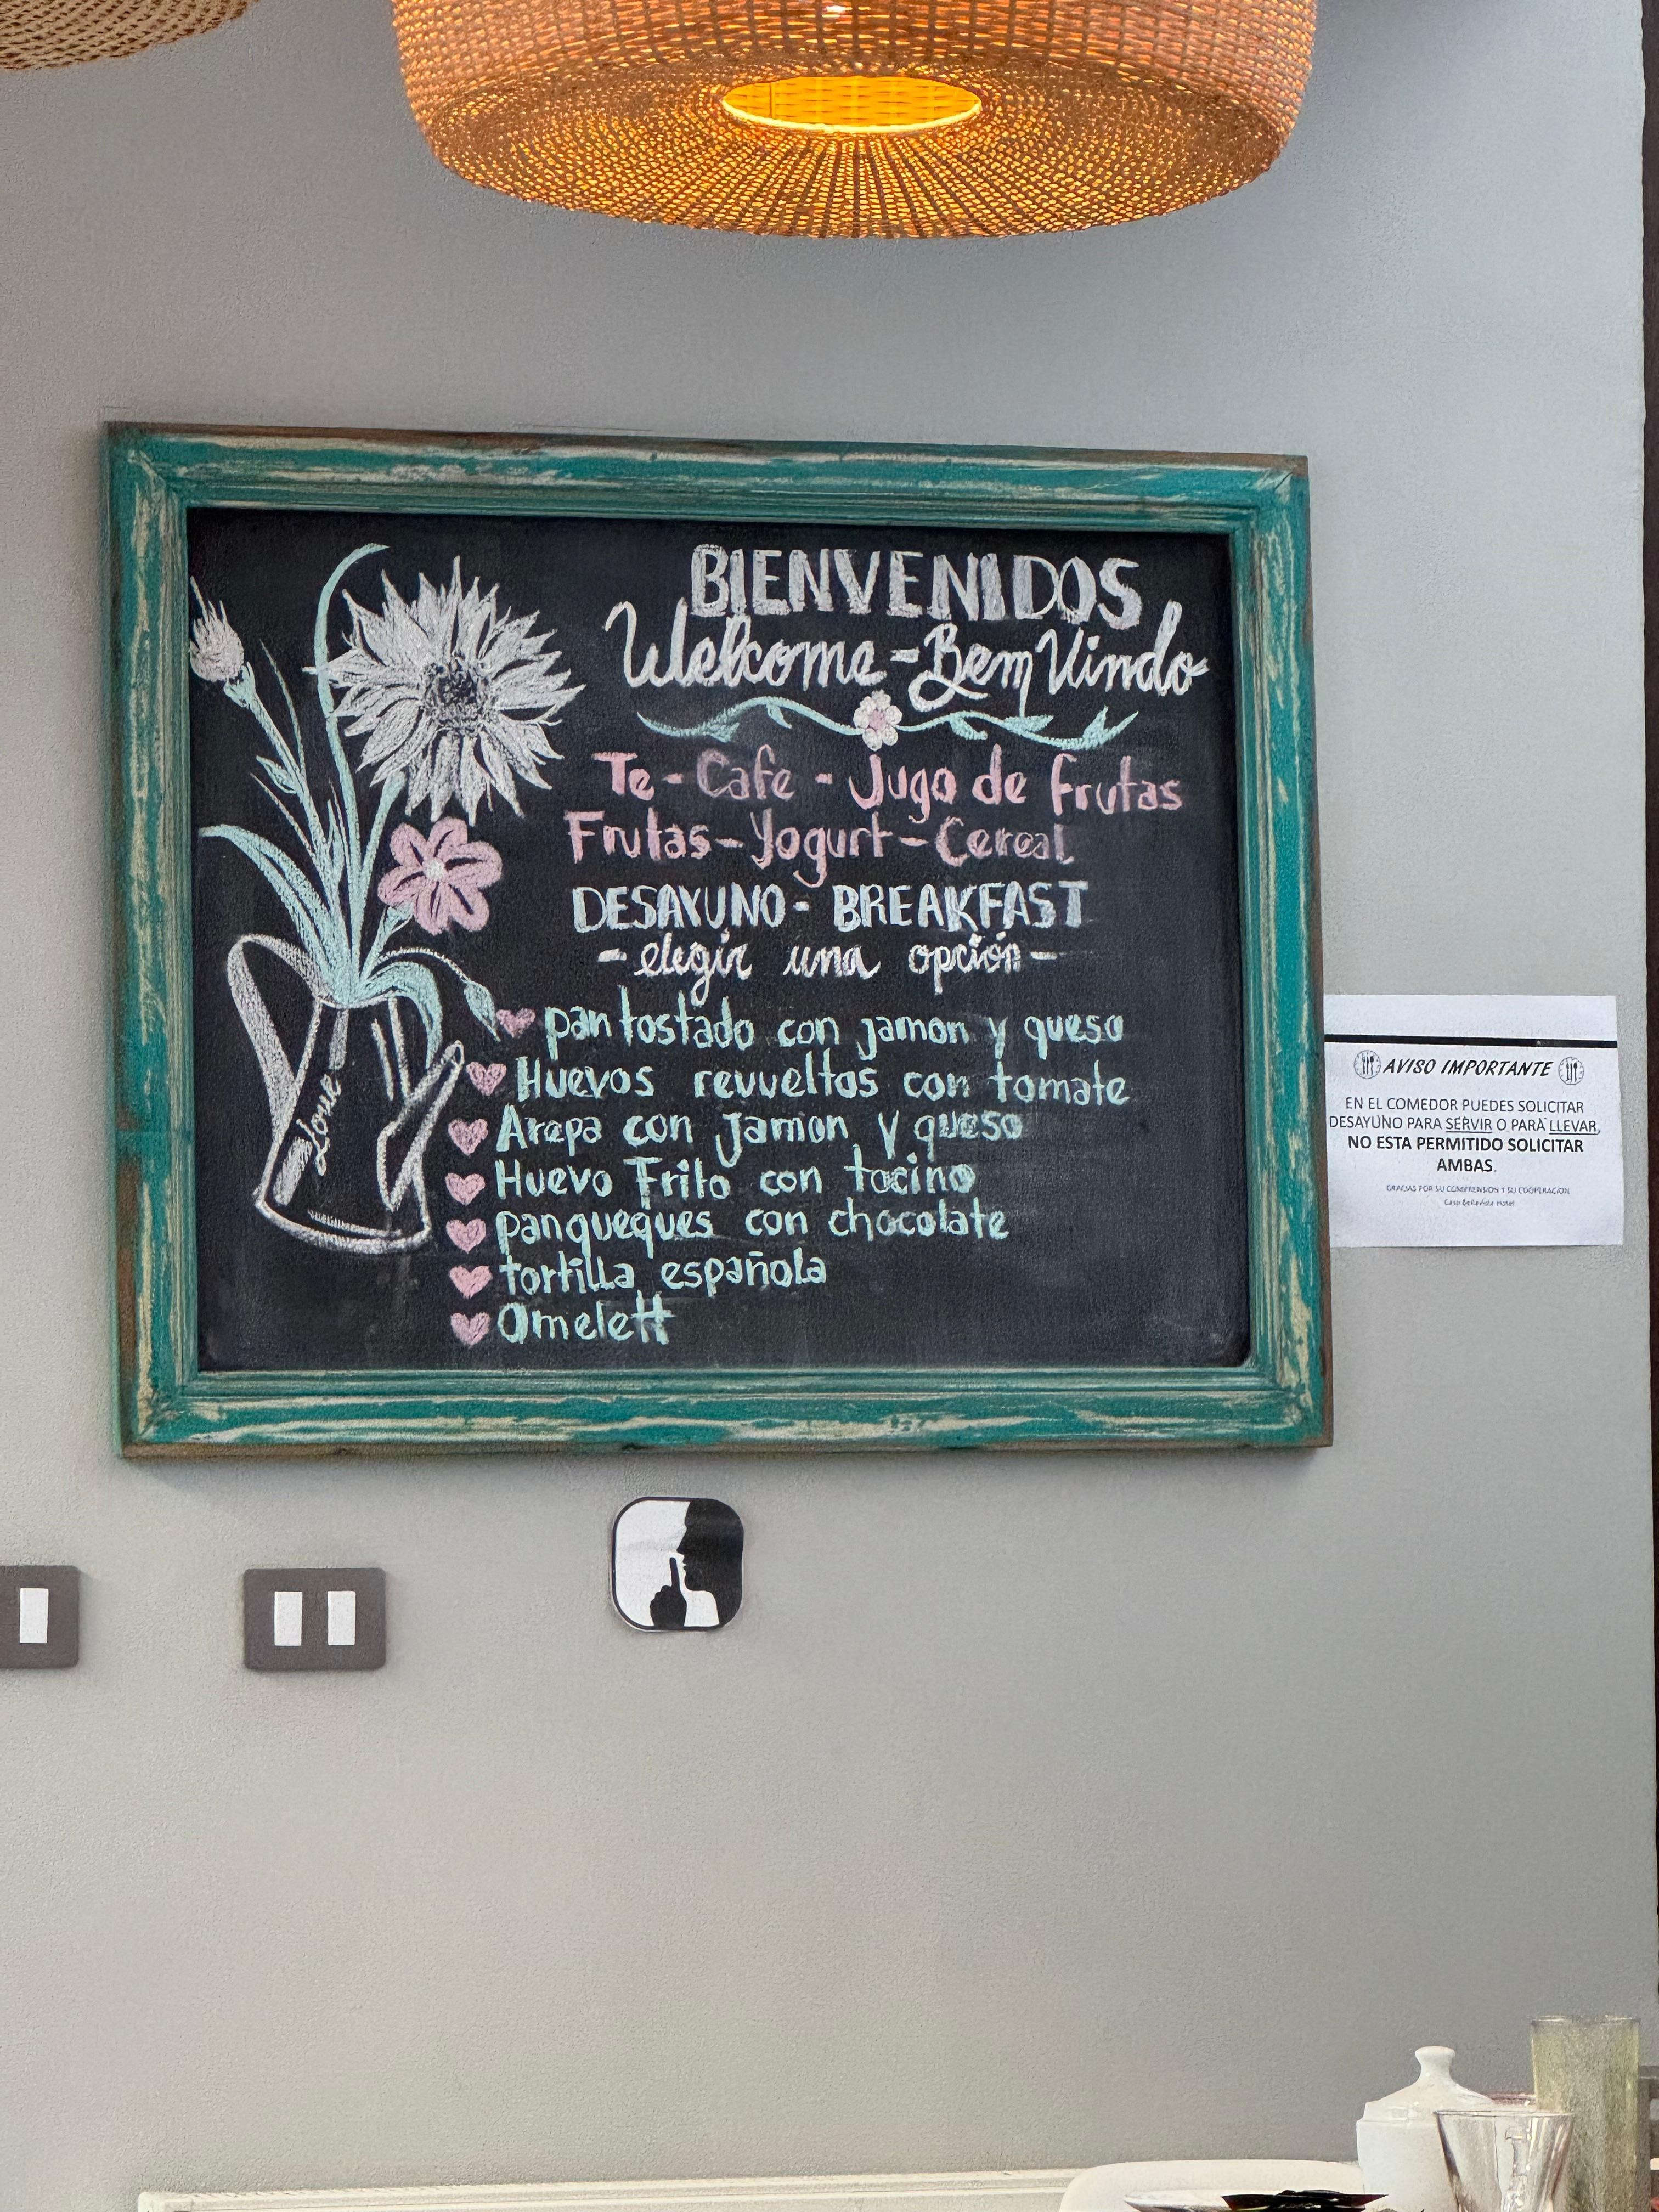 BIENVENIDOS
Welcome - Bem Vindo
Te - Cafe - Jugo de frutas
Frutas - Yogurt - Cereal
DESAYUNO - BREAKFAST
- elegir una opción -
pan tostado con jamon y queso
Huevos revueltos con tomate
Arepa con jamon y queso
Huevo Frito con tocino
panqueques con chocolate
tortilla española
Omelett
Love
AVISO IMPORTANTE
EN EL COMEDOR PUEDES SOLICITAR
DESAYUNO PARA SERVIR O PARA LLEVAR,
NO ESTA PERMITIDO SOLICITAR
AMBAS.
GRACIAS POR SU COMPRENSION Y SU COOPERACION
Casa Bellavista Hotel